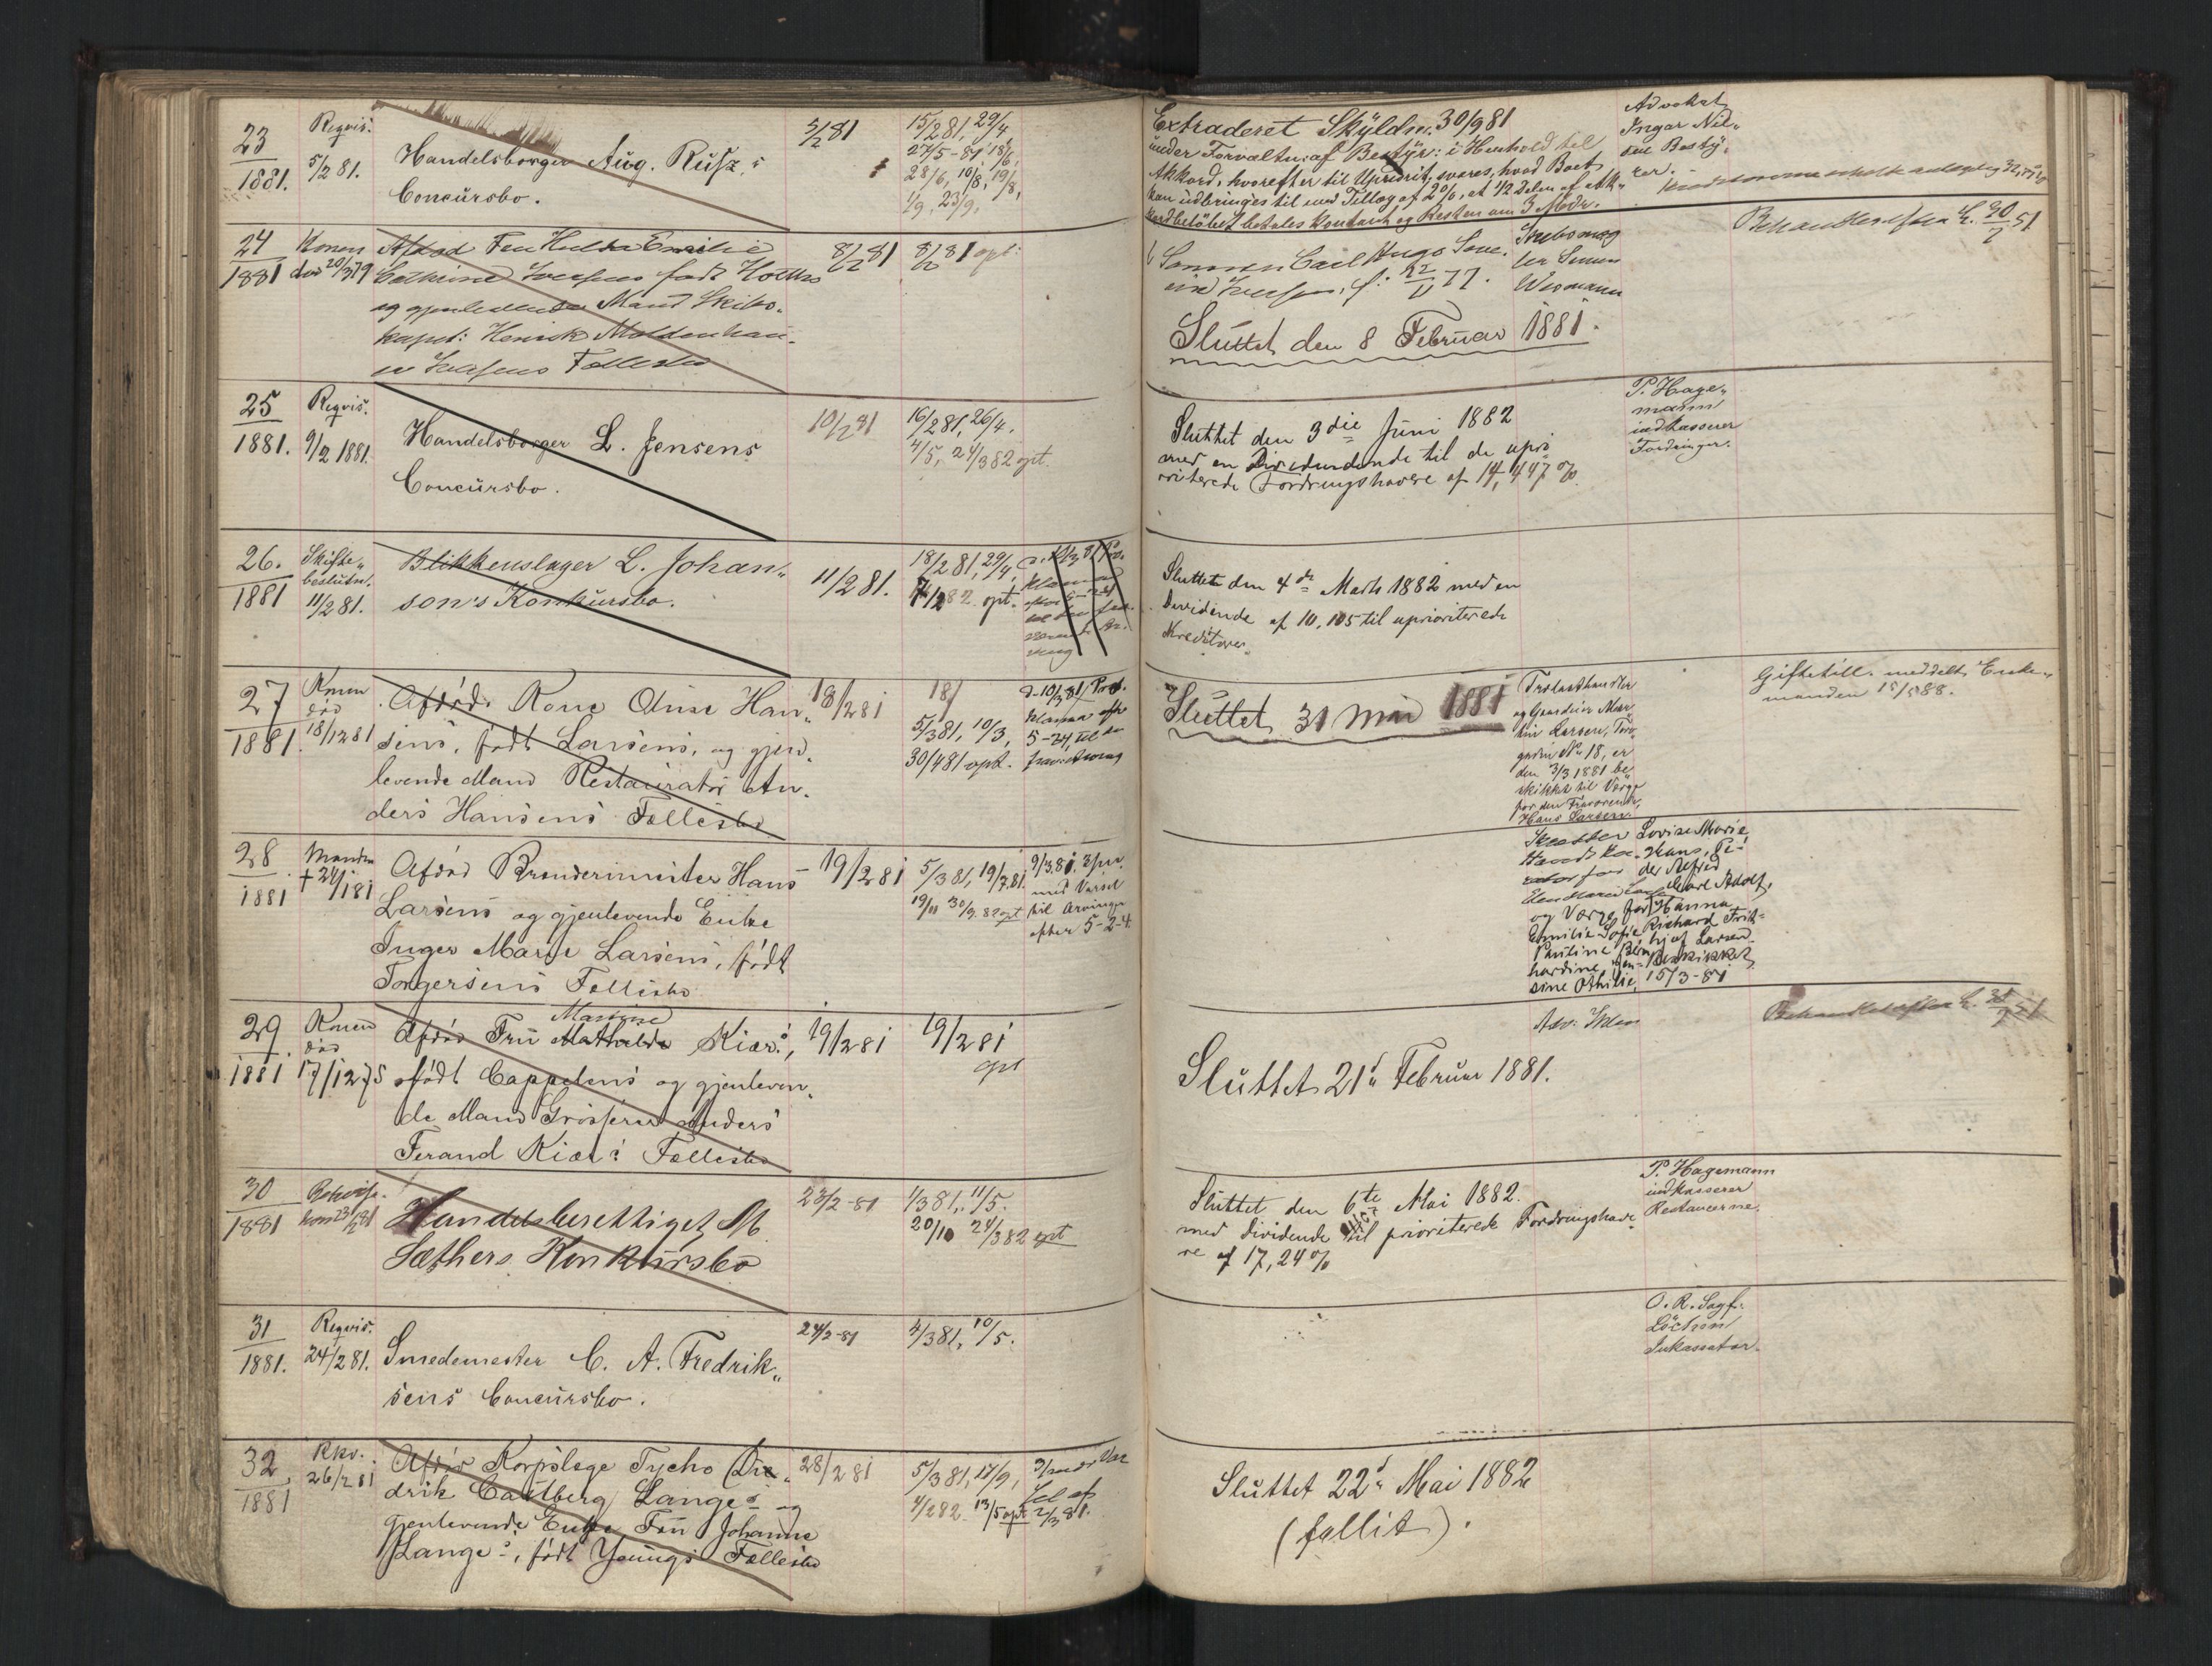 23
1881.
Reqvis.
5/2 81.
Handelsborger Aug. Rusz's
Concursbo.
5/2 81
15/2 81, 29/4,
27/5-81, 18/6,
28/6, 10/8, 19/8,
1/9, 23/9,
Extraderet Skyldn. 30/9 81
under Forvaltn: af Bestyr: i Henhold til
Akkord, hvorefter til Upriorit, svares, hvad Boet
kan udbringes til med Tillæg af 2%, at 1/2 Delen af Ak-
kordbeløbet betales kontant og Resten om 3 Mdr.
Advokat
Ingar Niel-
sen Besty-
rer.
24
1881
Konen
død 20/3 79
Afdød Fru Hulda Emilie
Cathrine Iversens født Holths
og gjenlevende Mand Skibs-
kapt: Henrik Moldenhau-
er Iversens Fællesbo
8/2 81
8/2 81 opt:
Sønnen Carl Hugo Seve-
rin Iversen, f: 22/11 77.
Slüttet den 8 Februar 1881.
Skibsmæg
ler Simon
Wismann
25
1881.
Reqvis.
9/2 1881.
Handelsborger L. Jensens
Concursbo.
10/2 81
16/2 81, 26/4.
4/5, 24/3 82 opt.
Sluttet den 3die Juni 1882
med en Dividende til de upri
oriterede Fordringshavere af 14,447 %.
P. Hage-
mann
indkasserer
Fordringer.
26.
1881
Skifte-
beslutn.
11/2 81.
Blikkenslager L. Johan-
son's Konkursbo.
11/2 81.
18/2 81, 29/4,
7/1 82 opt.
Sluttet den 4de Marts 1882 med en
Dividende af 10,105 til uprioriterede
Kreditorer.
27
1881.
Konen
død
18/12 81
Afdöde Kone Anne Han-
sens, født Larsens, og gjen-
levende Mand Restauratör An-
ders Hansens Fællesbo
18/2 81
18/
5/3 81, 10/3,
30/4 81 opt.
d-10/3 81 Prok-
klama efter
5-24, til en
fraværende
Slüttet 31 Mai 1881
Trælasthandler
og Gaardeier Mar-
tin Larsen, Torv-
gaden No 18, er
den 3/3 1881 be-
skikket til Værge
for den Fraværende,
Hans Larsen.
Giftetill. meddelt Enke-
manden 15/5 88.
28
1881
Manden
† 24/1 81
Afdöd Brøndermester Hans
Larsens og gjenlevende Enke
Inger Marie Larsens, født
Torgersens Fællesbo
19/2 81
5/3 81, 19/7 81.
19/11 30/9 82 opt
9/3 81. 3pr.
med Varsel
til Arvinger
efter 5-2-4.
Lovise Marie,
Hans, Pe-
der Alfred
Carl Adolf,
og Værge for Hanna
Emilie Sofie Richard Frit-
Pauline Bern- hjof Larsen
hardine, Jen- Beskikket
sine Othilie, 15/3-81
29
1881
Konen
død
17/12 75
Afdöd Frü Mathilde Martine Kiær's,
født Cappelens og gjenleven-
de Mand Grosserer Anders
Ferand Kiær's Fællesbo
19/2 81
19/2 81
opt
Sluttet 21de Februar 1881.
30
1881
23/2 81
Handelsberettiget M.
Sæthers Konkursbo
23/2-81
1/3 81, 11/5.
20/10 24/3 82 opt
Sluttet den 6te Mai 1882.
med Dividende til prioriterede Fordringshave
re af 17,24%
P. Hagemann
indkasserer
Restancerne.
31
1881.
Reqvis.
24/2 81.
Smedemester C. A. Fredrik-
sens Concursbo.
24/2-81
4/3 81, 10/5.
O. R. Sagf:
Löchen
Inkassator.
32
1881
Rkv.
26/2 81
Afdöd Korpslæge Tycho Die-
drik Castberg Lange's og
gjenlevende Enke Frü Johanne
Lange's, født Youngs Fællesbo
28/2 81
5/3 81, 17/9,
4/2 82 13/5 opt
2/3 81.
Sluttet 22de Mai 1882
(fallit).